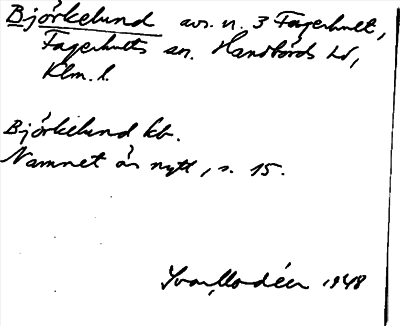 Björkelund avs. n. 3 Fagerhult,
Fagerhults sn. Handbörds hd,
Klm. l.
Björkelund kb.
Namnet är nytt, s. 15.
Ivar Modéer 1948